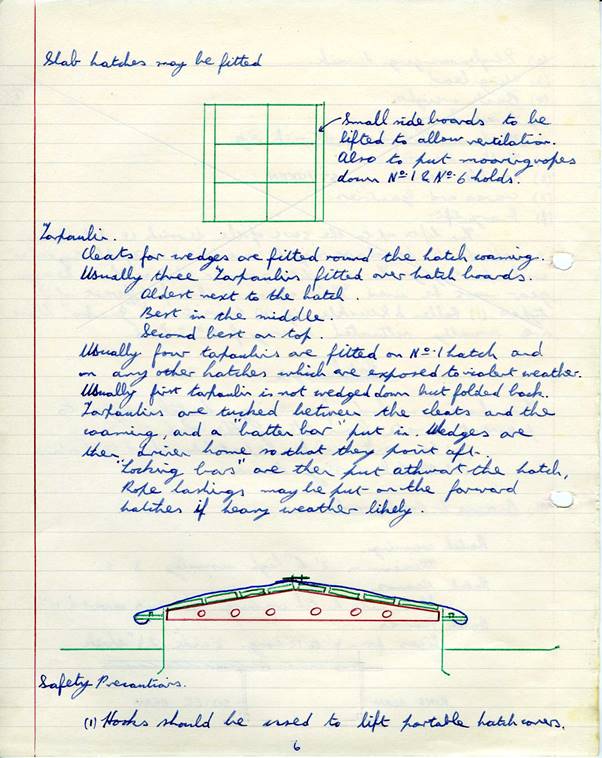 Slab hatches may be fitted
Small side boards to be
lifted to allow ventilation.
Also to put mooring ropes
down No. 1 & No. 6 holds.
Tarpaulin.
Cleats for wedges are fitted round the hatch coaming.
Usually three Tarpaulins fitted over hatch boards.
Oldest next to the hatch.
Best in the middle.
Second best on top.
Usually four tapaulins are fitted on No. 1 hatch and
on any other hatches which are exposed to violent weather.
Usually first tarpaulin is not wedged down but folded back.
Tarpaulins are tucked between the cleats and the
coaming, and a "batter bar" put in. Wedges are
then driven home so that they point aft.
"Locking bars" are then put athwart the hatch,
Rope lashings may be put on the forward
hatches if heavy weather likely.
Safety Precautions.
(1) Hooks should be used to lift portable hatch covers.
6